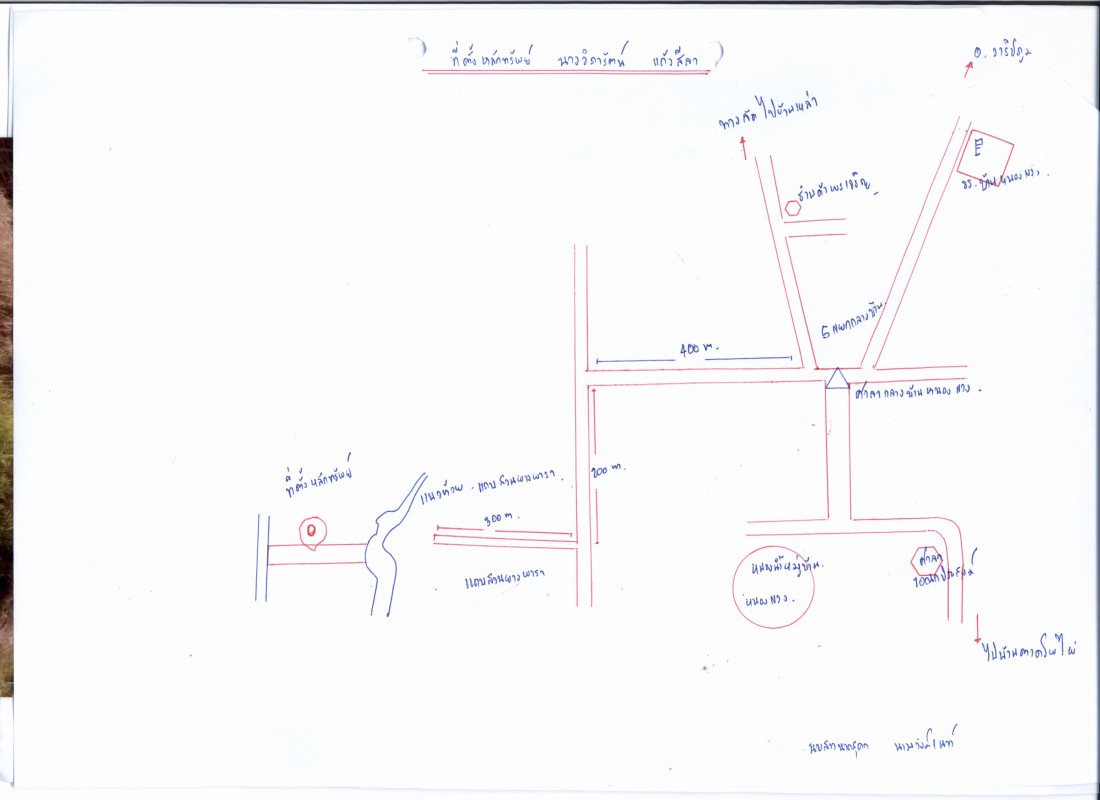 ที่ตั้งหลักทรัพย์ นางวิภารัตน์ แก้วสีลา
อ. วาริชภูมิ
ทางลัดไปบ้านเหล่า
ร้านค้าพรเจริญ
รร.บ้านหนองแวง.
5 แยกกลางบ้าน.
400 ม.
ศาลากลางบ้านหนองแวง.
200 ม.
ที่ตั้งหลักทรัพย์
แถบสวนยางพารา.
300 ม.
แถบสวนยางพารา
หนองน้ำหมู่บ้าน.
หนองแวง.
ศาลา
อเนกประสงค์
ไปบ้านตาดโพไผ่